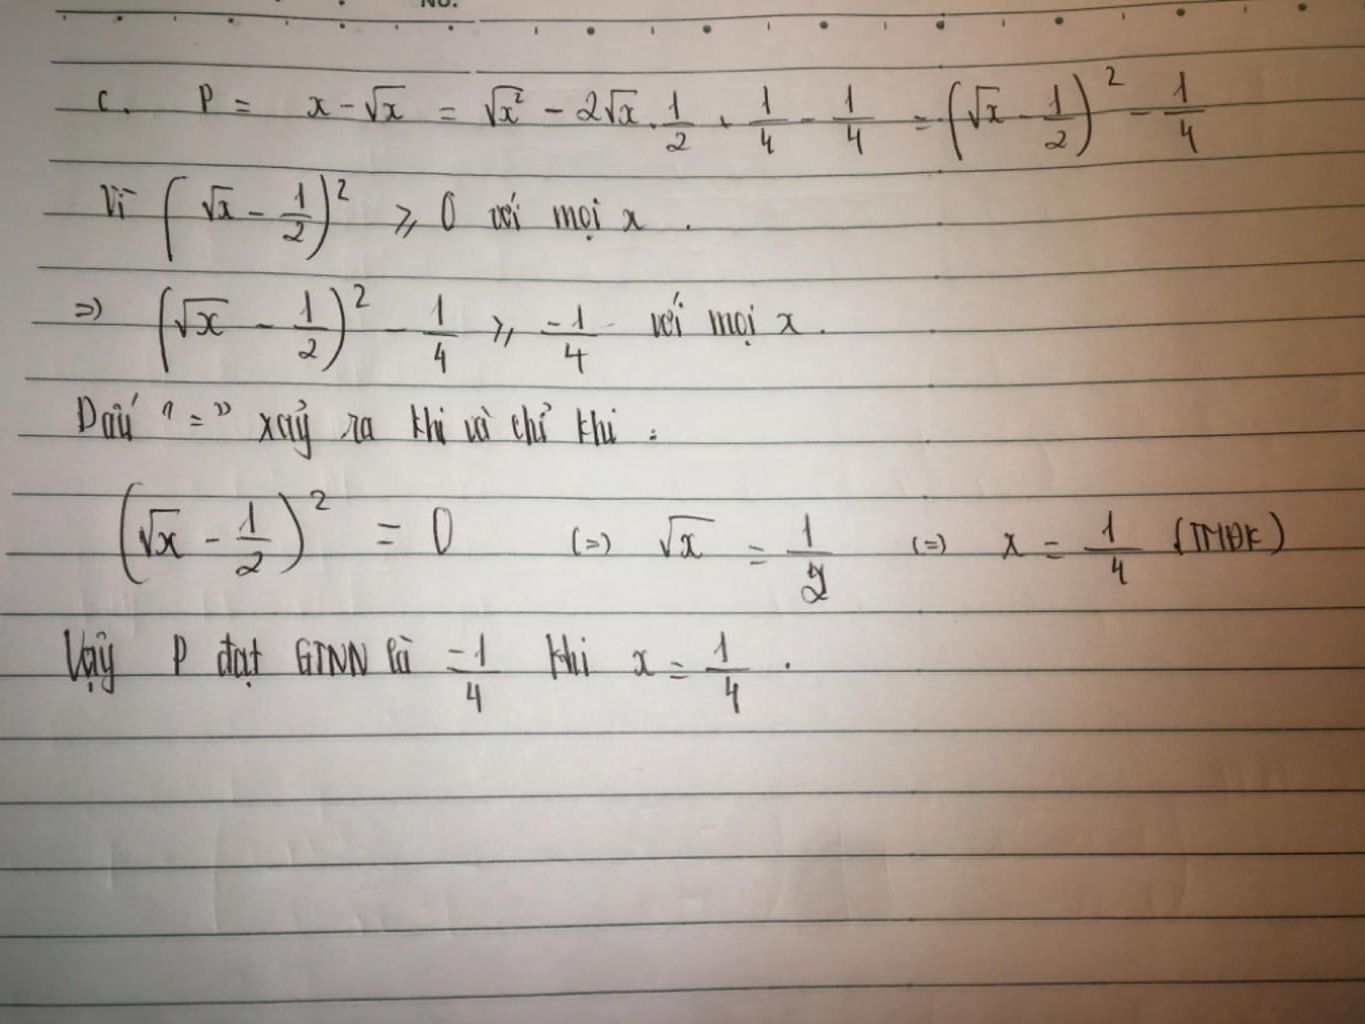 No.
c. P = x - √x = √x² - 2√x . 1/2 + 1/4 - 1/4 = (√x - 1/2)² - 1/4
Vì (√x - 1/2)² ⩾ 0 với mọi x .
=) (√x - 1/2)² - 1/4 ⩾ -1/4 với mọi x .
Dấu "=" xảy ra khi và chỉ khi :
(√x - 1/2)² = 0 (=) √x = 1/2 (=) x = 1/4 (TMĐK)
Vậy P đạt GTNN là -1/4 khi x = 1/4 .